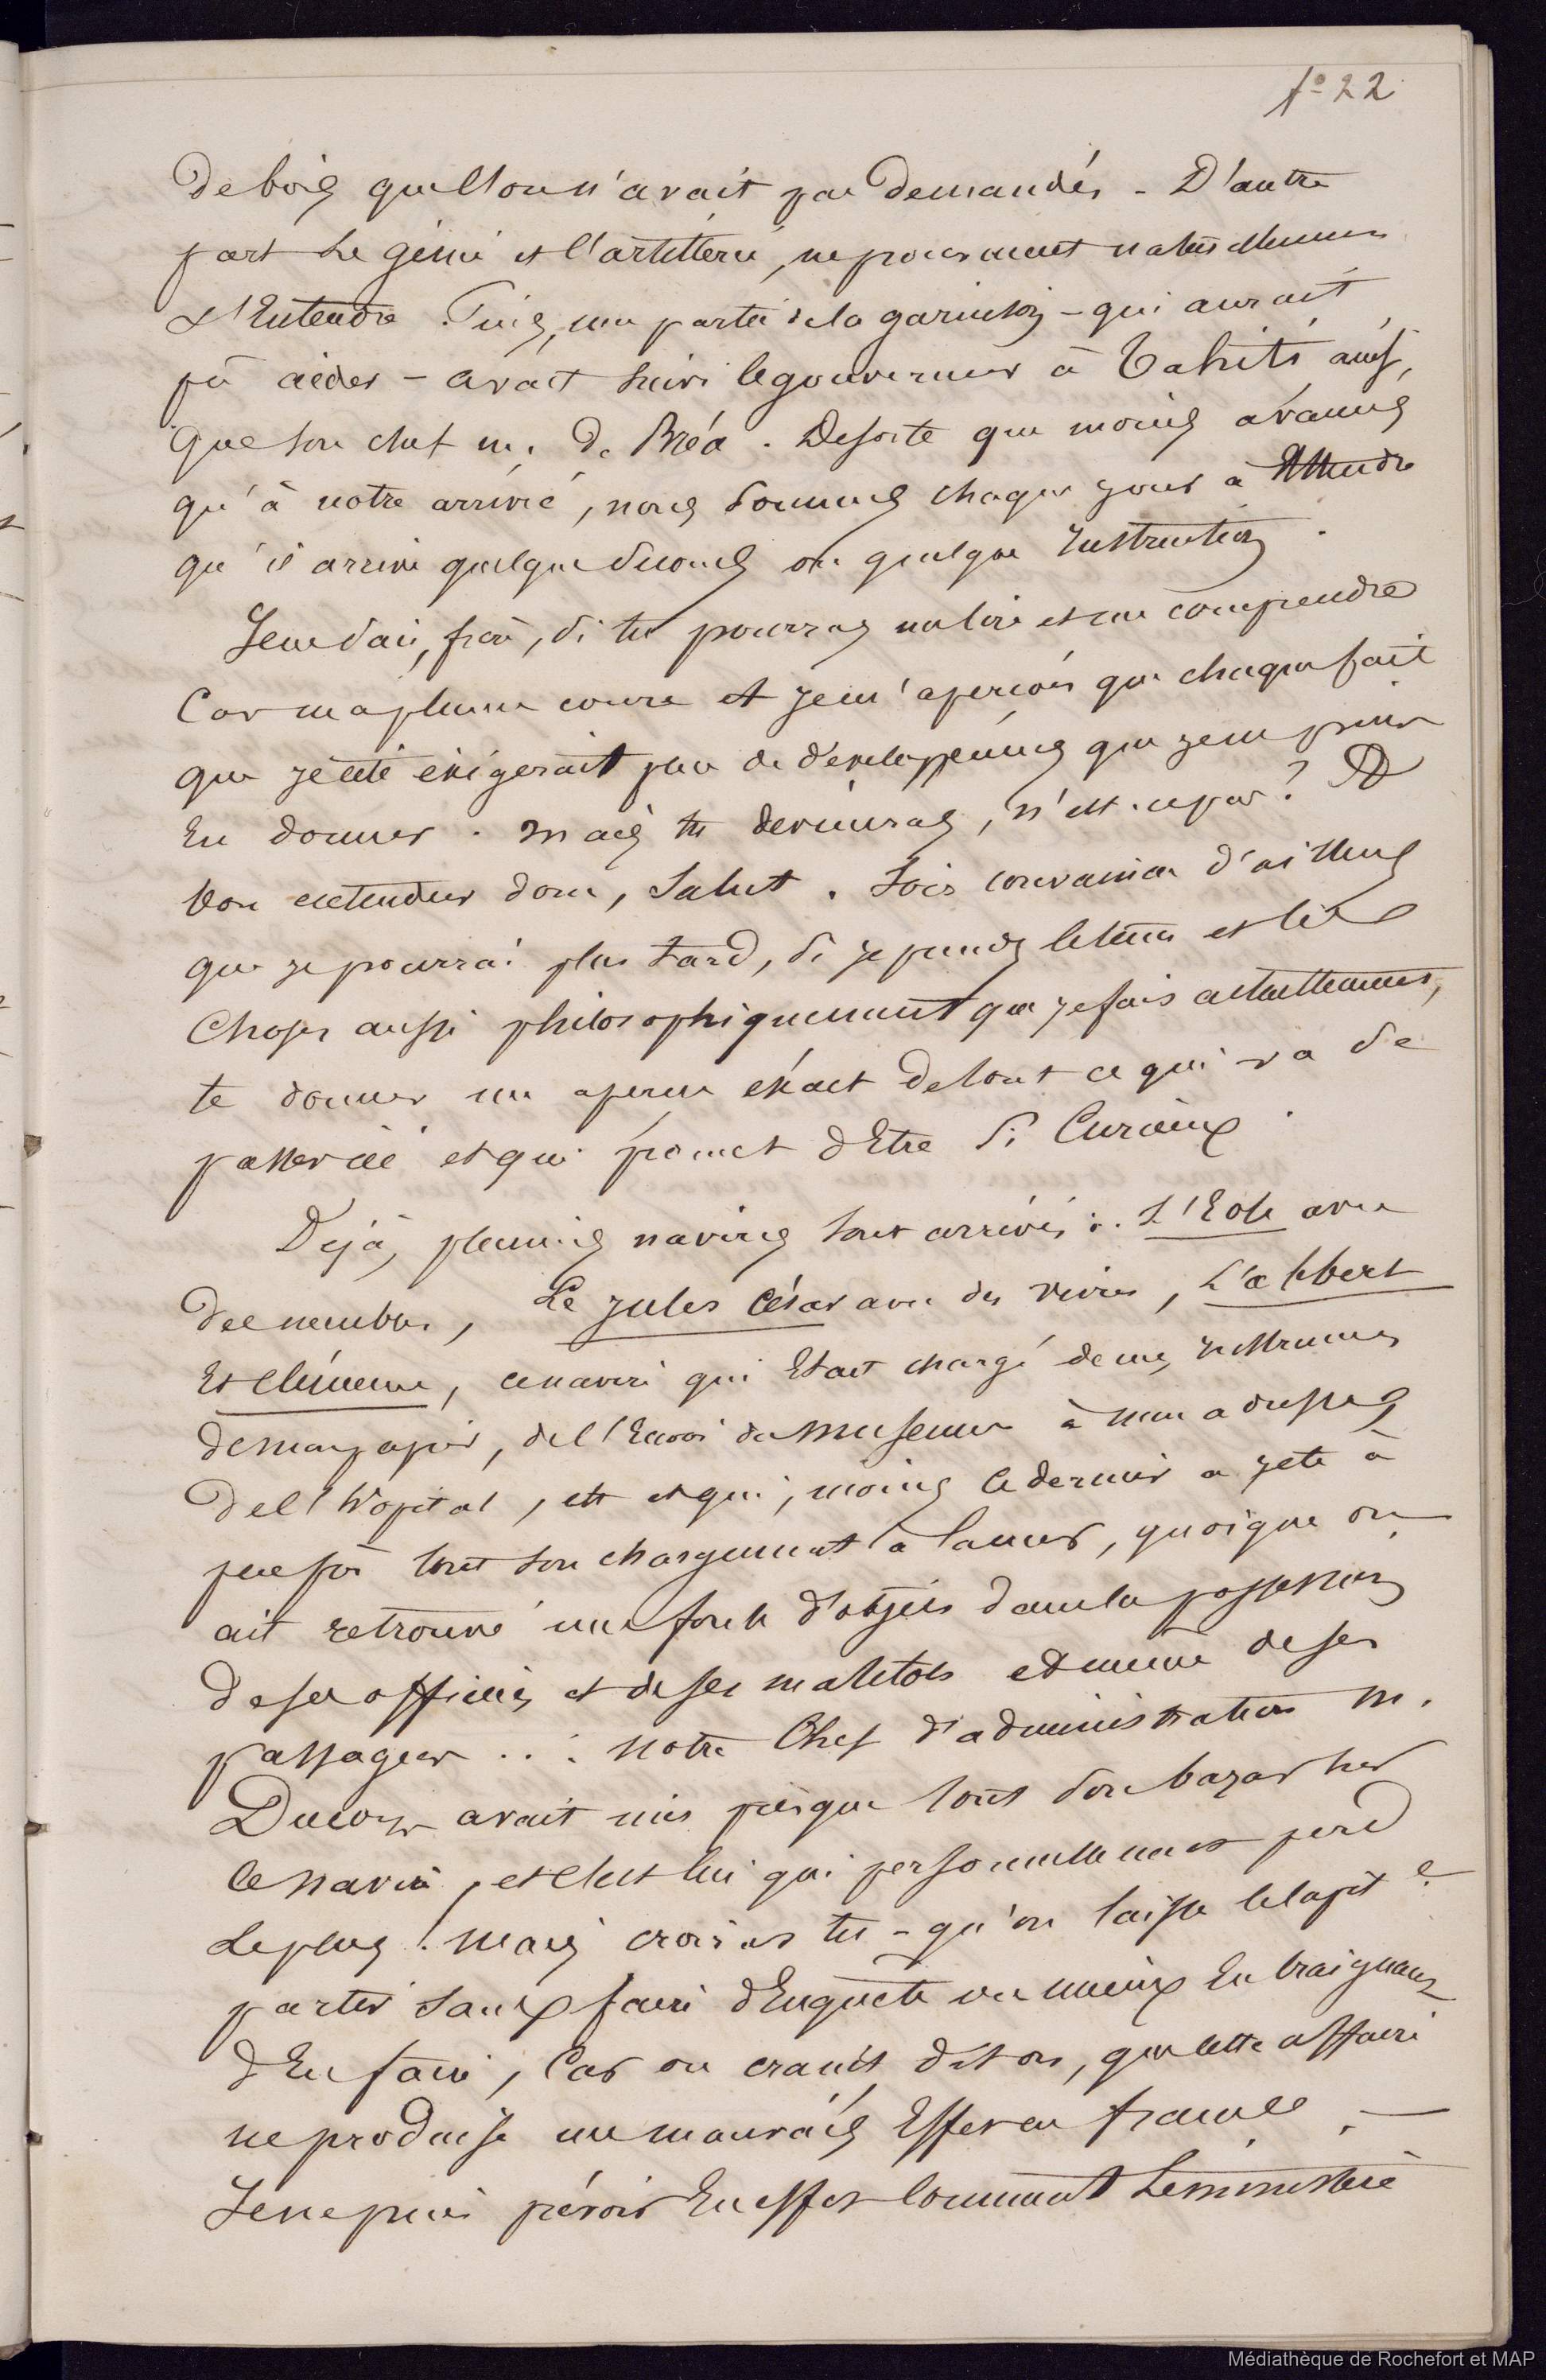 fº 22
de bois que l'on n'avait pas demandés - D'autre
part le génie et l'artillerie, ne pouvaient naturellement
s'Entendre. Puis, une partie de la garnison - qui aurait
pû aider - avait suivi le gouverneur à Tahiti ainsi
que son chef m. de Bréa. De sorte que moins avancés
qu'à notre arrivée, nous sommes chaque jour à Attendre
qu'il arrive quelque secours ou quelque Instruction.
Je ne sais, frère, si tu pourras me lire et me comprendre
Car ma plume coure et je m'aperçois que chaque fait
que je cite exigerait plus de développements que je ne puis
En donner. Mais tu devineras, n'est-ce pas? A
bon entendeur donc, Salut. Sois convaincu d'ailleurs
que je pourrai plus tard, si je prends le temps et les
Choses aussi philosophiquement que je fais actuellement,
te donner un aperçu exact de tout ce qui va se
passer ici et qui promet d'Etre si Curieux.
Dejà, plusieurs navires sont arrivés: L'Eole avec
des membres, Le Jules César avec des vivres, L'albert
Et Clémence, ce navire qui Etait chargé de mes Instruments
de mon papier, de l'Envoi du Museum à mon adresse,
de l'hôpital, etc et qui, moins ce dernier a jeté à
tout son chargement à la mer, quoique on
ait retrouvé une foule d'objets dans la possession
de ses officiers et de ses matelots et même de ses
passagers ... notre Chef d'administration M.
avait mis presque tout son bazar sur
ce navire, et c'est lui qui personnellement perd
le plus. mais croirais tu - qu'on laisse le capit.e
partir sans faire d'Enquête ou mieux En craignant
d'En faire, Car on craint, dit on, que cette affaire
ne produise un mauvais Effet en france. —
Je ne puis prévoir En effet Comment Le ministère
Médiathèque de Rochefort et MAP